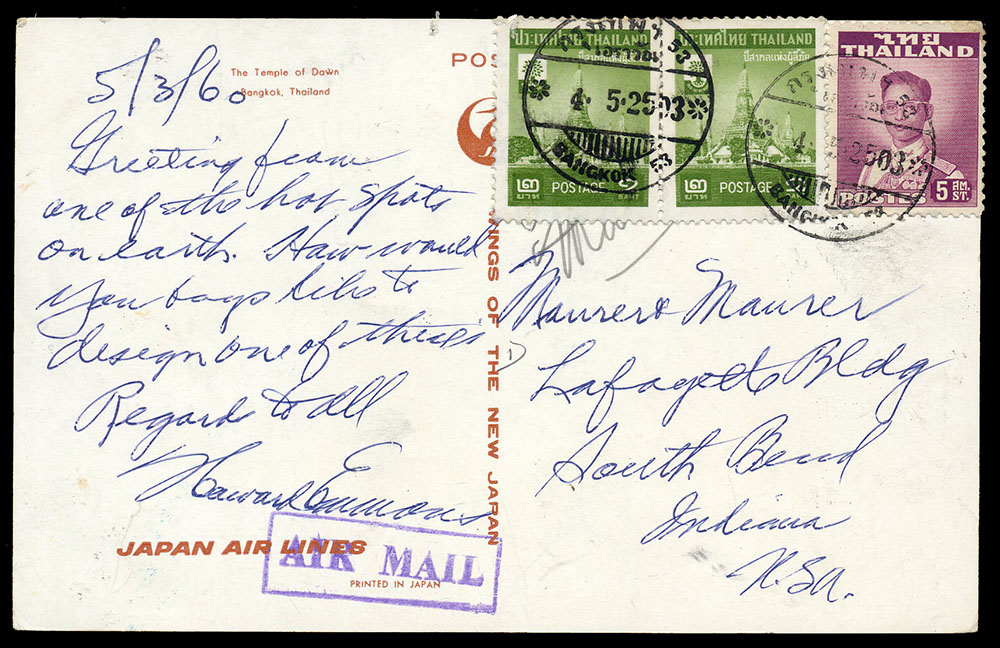 5/3/60
The Temple of Dawn
Bangkok, Thailand
Greeting from
one of the hot spots
on earth. How would
you boys like to
design one of these
Regards to all
Howard Emmons
JAPAN AIR LINES
AIR MAIL
PRINTED IN JAPAN
POS
WINGS OF THE NEW JAPAN
ประเทศไทย THAILAND
๒ บาท POSTAGE
BAHT
ประเทศไทย THAILAND
๒ บาท POSTAGE
ไทย
THAILAND
5 สต. ST.
53
4 5·2503
BANGKOK 53
4 2503
BANGKOK
1
Maurer & Maurer
Lafayette Bldg
South Bend
Indiana
U.S.A.